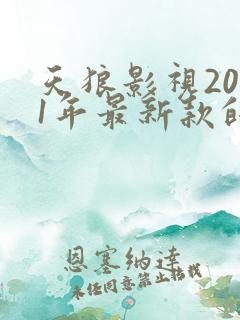 天狼影視20
1年最新款
恩塞纳達
未任同意禁止转载